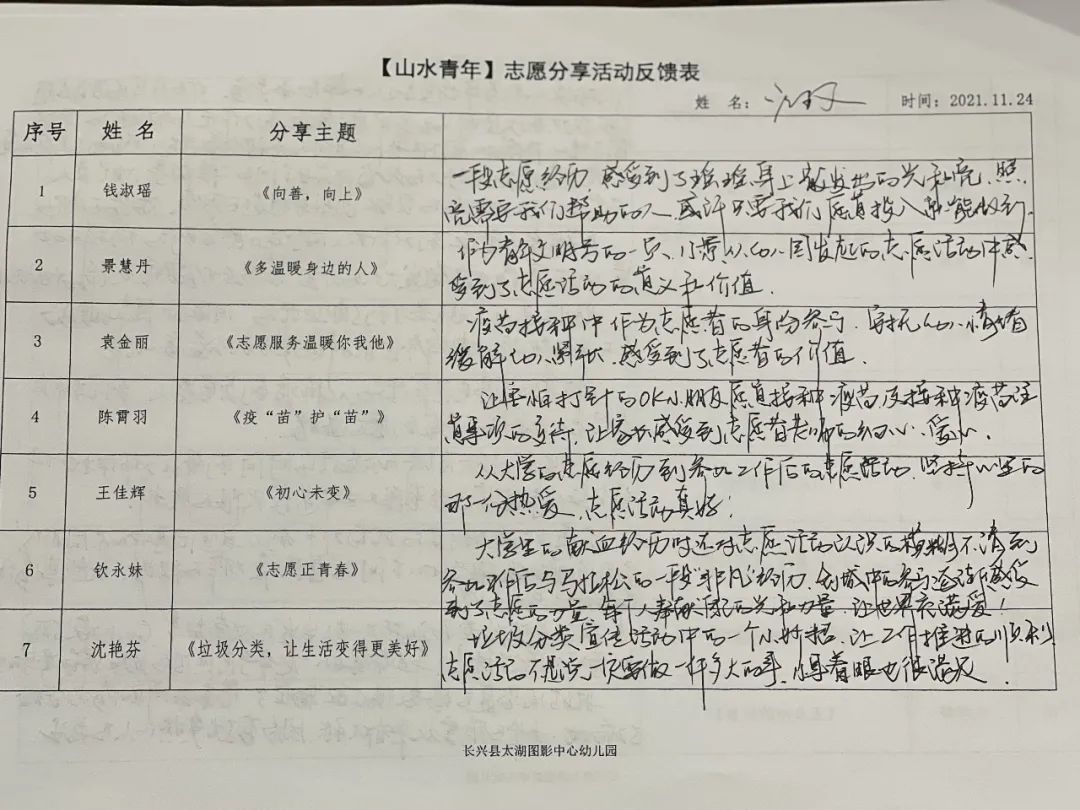 【山水青年】志愿分享活动反馈表
姓 名： 时间：2021.11.24
序号 姓 名 分享主题
1 钱淑瑶 《向善，向上》
一段志愿经历，感受到了瑶瑶身上散发出的光和亮，照
亮需要我们帮助的人，或许只要我们愿意投入就能做到.
2 景慧丹 《多温暖身边的人》
作为青年文明号的一员、小景从 发起的志愿活动中感
受到了志愿活动的意义和价值.
3 袁金丽 《志愿服务温暖你我他》
疫苗接种中作为志愿者的身份参与，安抚 情绪
缓解 ，感受到了志愿者的价值.
4 陈霄羽 《疫“苗”护“苗”》
让害怕打针的 小朋友愿意接种疫苗及接种疫苗注
意事项的交待，让家长感受到志愿者老师的细心、爱心.
5 王佳辉 《初心未变》
从大学的志愿经历到参加工作后的志愿活动，坚持 的
那份热爱，志愿活动真好！
6 钦永妹 《志愿正青春》
大学生的献血经历时还对志愿活动认识的模糊不清到
参加工作后与马拉松的一段“非凡”经历，创城中的参与逐渐感受
到了志愿的力量，每个人奉献 的光和力量，让世界充满爱！
7 沈艳芬 《垃圾分类，让生活变得更美好》
垃圾分类宣传活动中的一个小妙招，让工作推进的顺利
志愿活动不是说一定要做一件多大的事，小事着眼也很满足.
长兴县太湖图影中心幼儿园